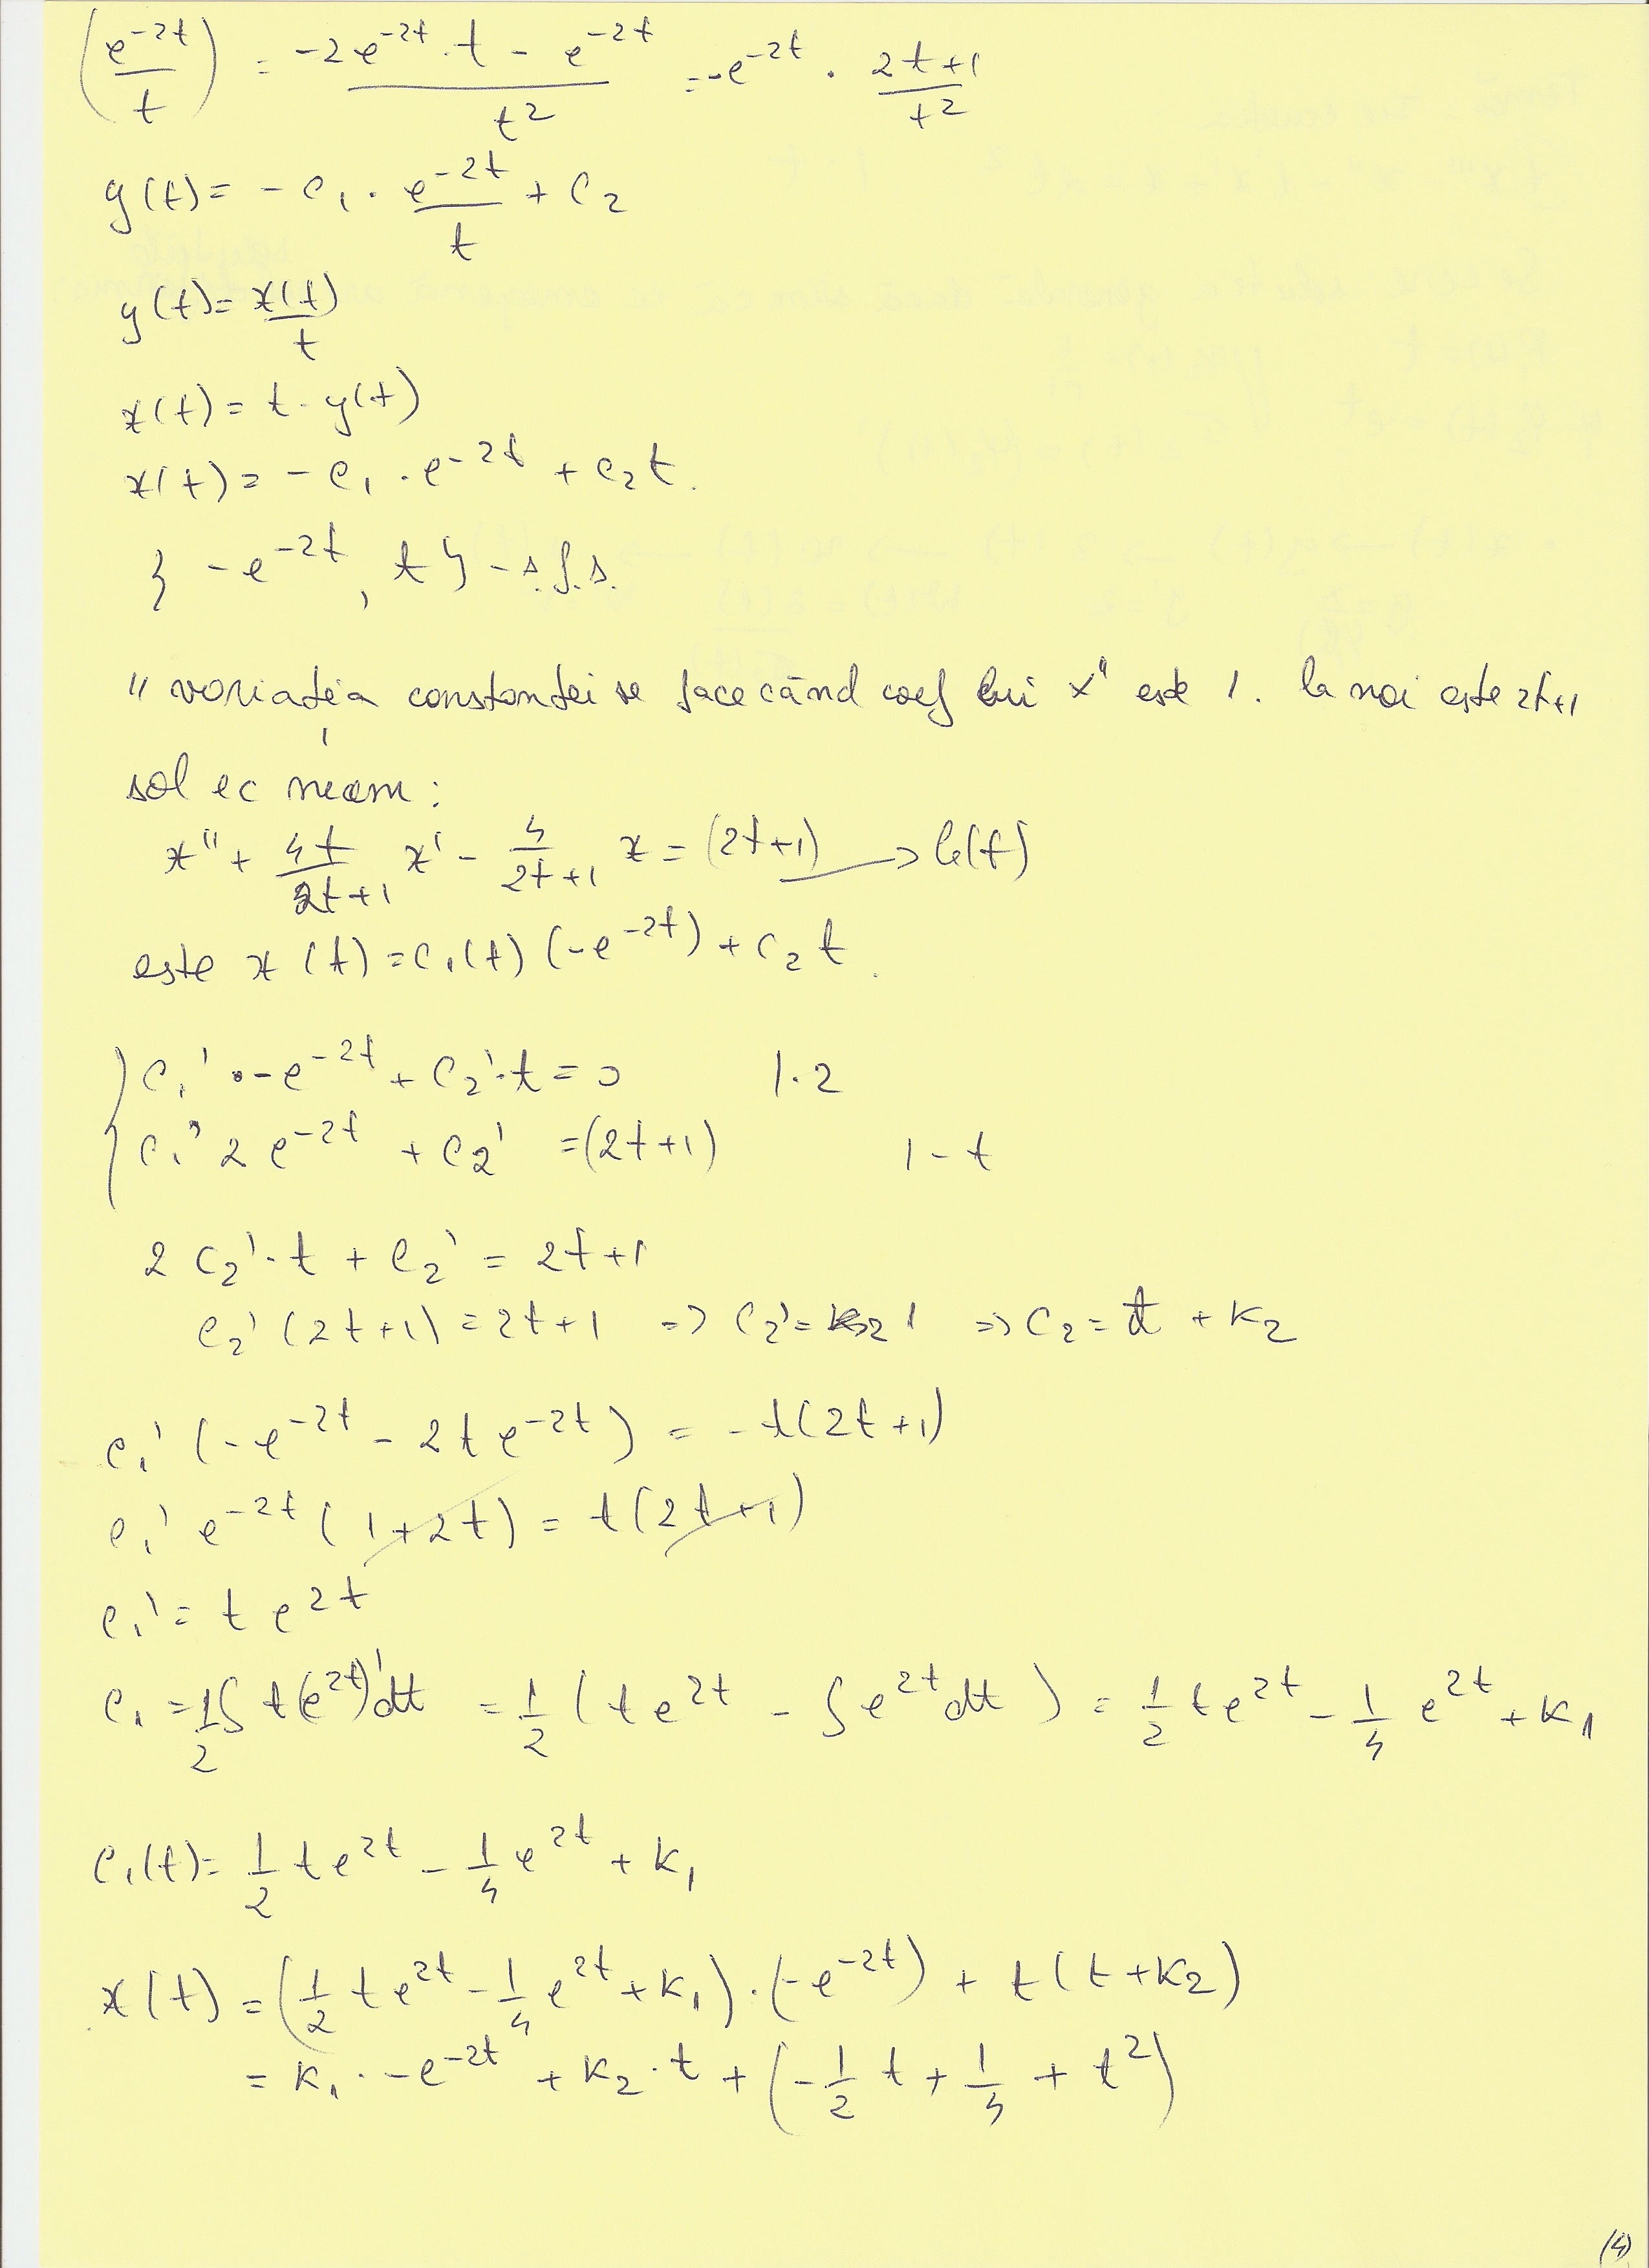 (e^{-2t}/t) = (-2e^{-2t}·t - e^{-2t})/t² = -e^{-2t} · (2t+1)/t²
y(t) = -c₁ · e^{-2t}/t + c₂
y(t) = x(t)/t
x(t) = t · y(t)
x(t) = -c₁ · e^{-2t} + c₂t.
{ -e^{-2t}, t } - s.f.s.
" variația constantei se face când coef lui x" este 1. la noi este 2t+1
sol ec neom :
x" + 4t/(2t+1) x' - 4/(2t+1) x = (2t+1) → b(t)
este x(t) = c₁(t) (-e^{-2t}) + c₂ t.
{ c₁' · -e^{-2t} + c₂'·t = 0 | · 2
c₁' 2 e^{-2t} + c₂' = (2t+1) | - t
2 c₂'·t + c₂' = 2t+1
c₂' (2t+1) = 2t+1 => c₂' = 1 => c₂ = t + k₂
c₁' (-e^{-2t} - 2t e^{-2t}) = -t(2t+1)
c₁' e^{-2t} (1+2t) = t(2t+1)
c₁' = t e^{2t}
c₁ = 1/2 ∫ t(e^{2t})' dt = 1/2 (t e^{2t} - ∫ e^{2t} dt) = 1/2 t e^{2t} - 1/4 e^{2t} + k₁
c₁(t) = 1/2 t e^{2t} - 1/4 e^{2t} + k₁
x(t) = (1/2 t e^{2t} - 1/4 e^{2t} + k₁) · (-e^{-2t}) + t(t+k₂)
= k₁ · -e^{-2t} + k₂ · t + (-1/2 t + 1/4 + t²)
(4)